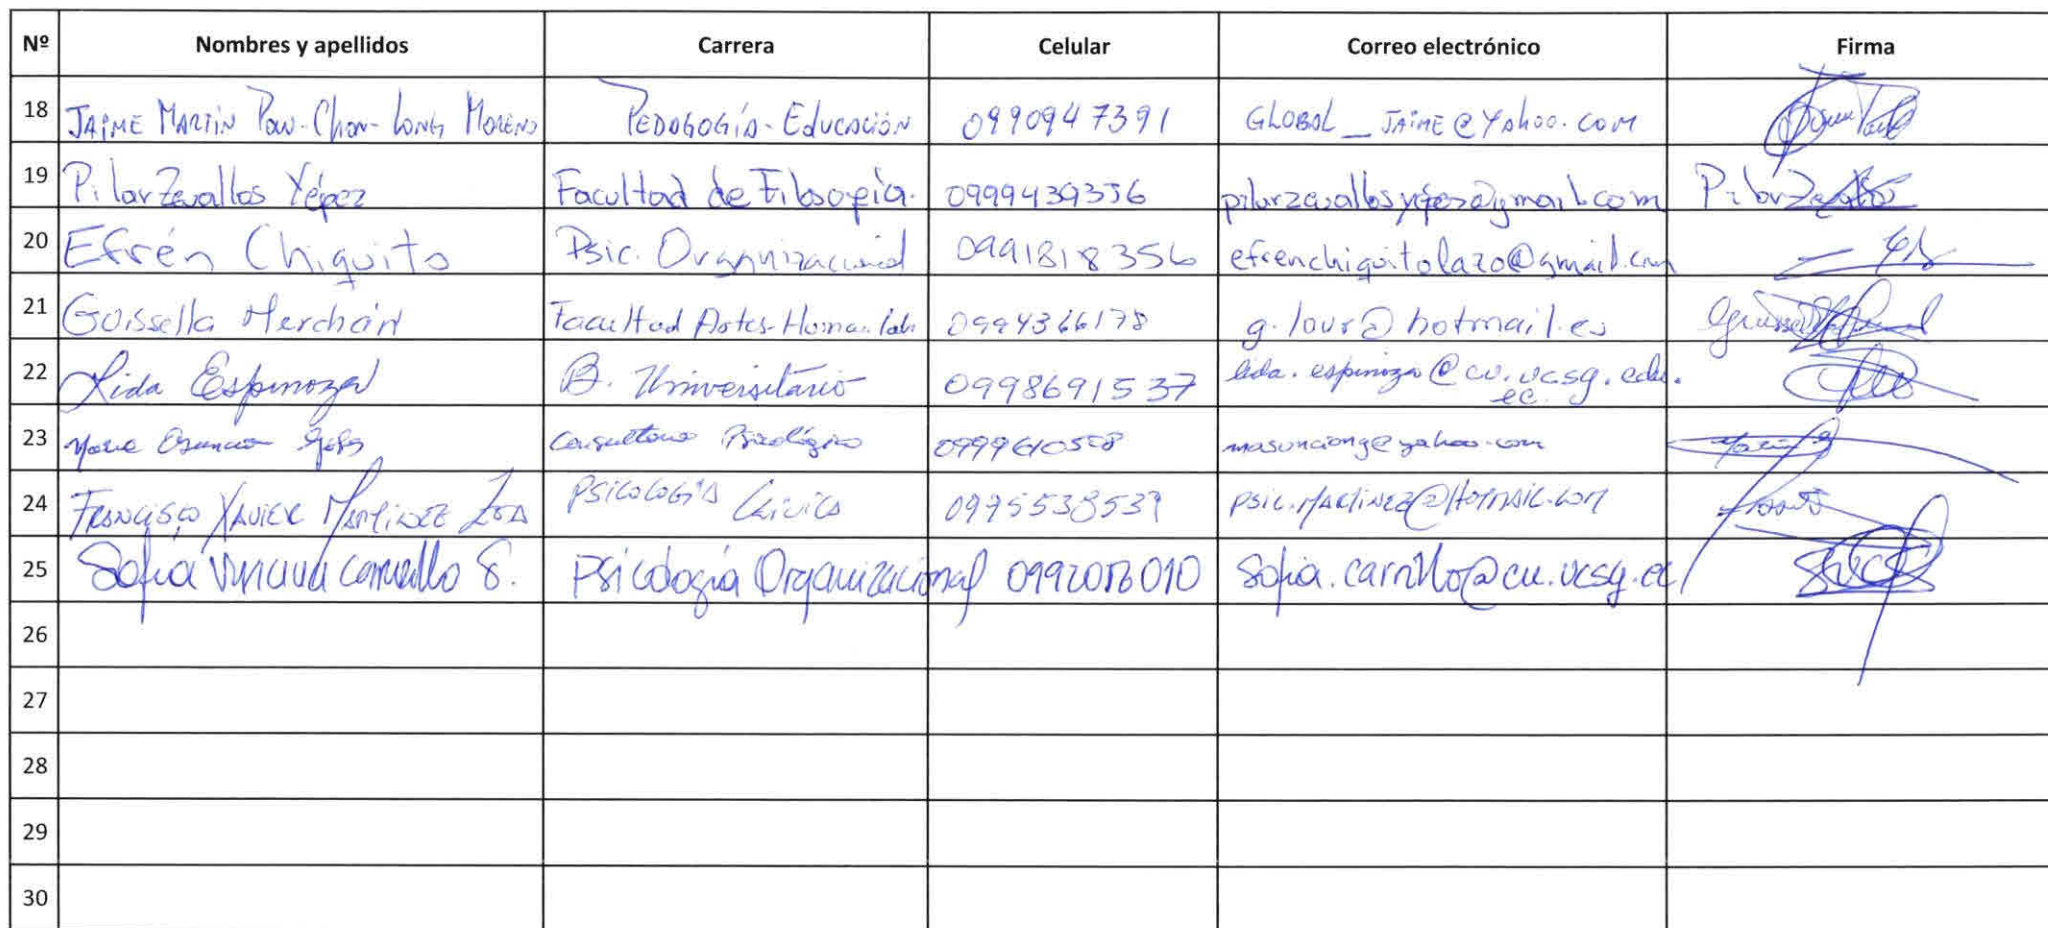 Nº Nombres y apellidos Carrera Celular Correo electrónico Firma
18 JAIME MARTÍN Pow-Chon-Long MORENO PEDAGOGÍA - EDUCACIÓN 0990947391 GLOBAL_JAIME@YAHOO.COM
19 Pilar Zevallos Yépez Facultad de Filosofía. 0999439356 pilarzevallosyépez@gmail.com Pilar Zevallos
20 Efrén Chiquito Psic. Organizacional 0991818356 efrenchiquitolazo@gmail.com
21 Goissella Merchán Facultad Artes-Humanidades 0994366178 g.lour@hotmail.es
22 Lida Espinoza B. Universitario 0998691537 lida.espinoza@cu.ucsg.edu.
ec.
23 Consultorio Psicológico masunciong@yahoo.com
24 FRANCISCO XAVIER MARTÍNEZ PSICOLOGÍA Clínica 0995538539 PSIC.MARTINEZ@HOTMAIL.COM
25 Sofía Viviana Carrillo S. Psicología Organizacional Sofia.carrillo@cu.ucsg.ec
26
27
28
29
30